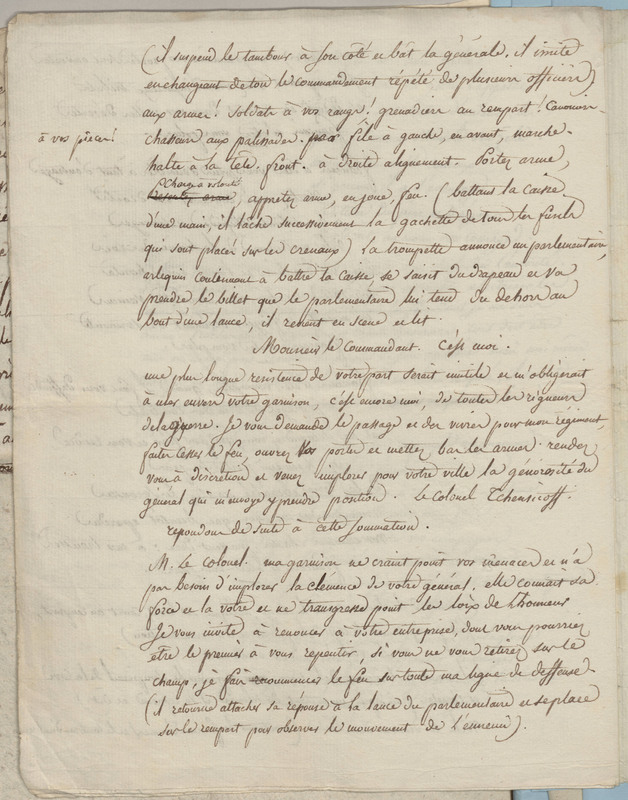 (il suspend le tambour à son coté et bat la générale. il imite
en changeant de ton le commandement répété de plusieurs officiers)
aux armes! soldats à vos rangs! grenadiers au rempart! Canonniers
à vos pièces!
chasseurs aux palissades. file à gauche, en avant, marche.
halte à la tete. front. à droite alignement. Portez arme,
Charge à volonté
presentez arme, appretez arme, en joue, feu. (battant la caisse
d'une main, il lâche successivement la gachette de tous les fusils
qui sont placés sur les crenaux) la trompette annonce un parlementaire,
arlequin continuant à battre la caisse, se saisit du drapeau et va
prendre le billet que le parlementaire lui tend du dehors au
bout d'une lance, il revient en scene et lit.
Monsieur le Commandant. c'est moi.
une plus longue resistence de votre part serait inutile et m'obligerait
à user envers votre garnison, c'est encore moi, de toutes les rigueurs
de la guerre. je vous demande le passage et des vivres pour mon régiment,
faites cesser le feu, ouvrez vos portes et mettez bas les armes. rendez
vous à discretion et venez implorer pour votre ville la générosité du
général qui m'envoye y prendre position. Le Colonel
repondons de suite à cette sommation.
M. Le colonel. ma garnison ne craint point vos menaces et n'a
pas besoin d'implorer la clémence de votre général. elle connait sa
force et la votre et ne transgresse point les loix de l'honneur
Je vous invite à renoncer à votre entreprise, dont vous pourriez
etre le premier à vous repentir, si vous ne vous retirez sur le
champ, je fais recommencer le feu sur toute ma ligne de deffense.
(il retourne attacher sa réponse à la lance du parlementaire et se place
sur le rempart pour observer le mouvement de l'ennemi).